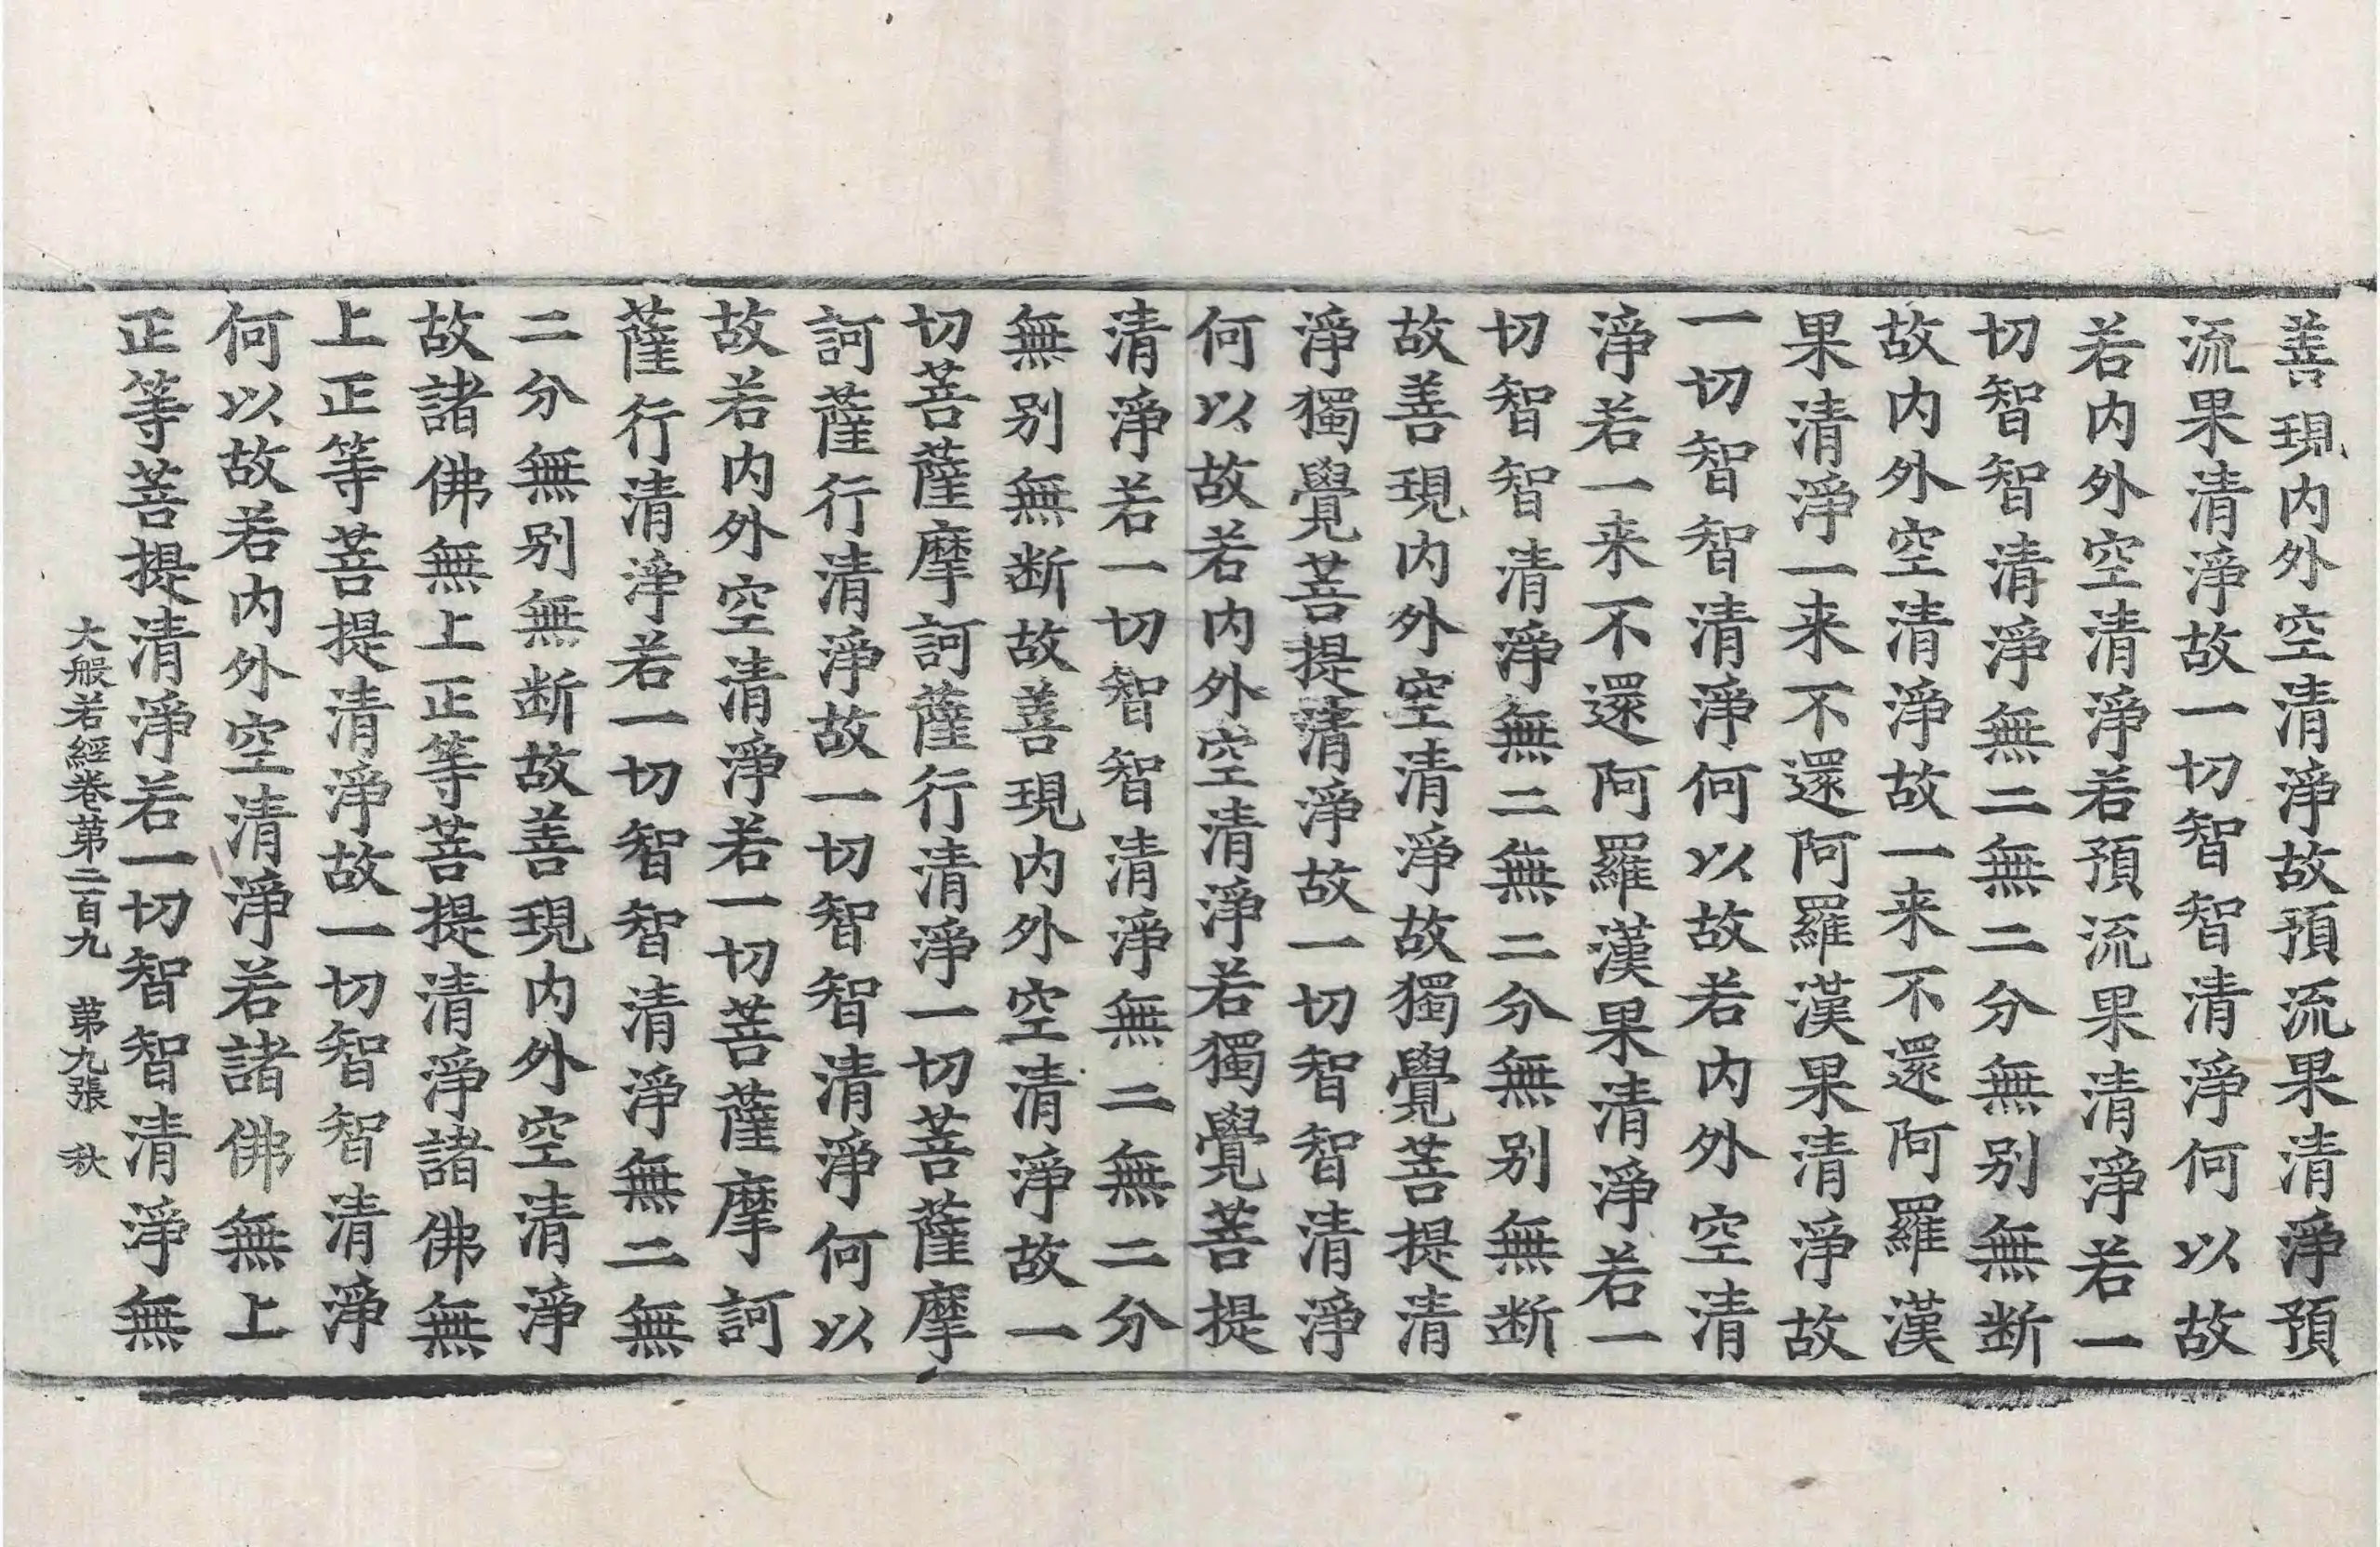 善現内外空清淨故預流果清淨預
流果清淨故一切智智清淨何以故
若内外空清淨若預流果清淨若一
切智智清淨無二無二分無别無断
故内外空清淨故一来不還阿羅漢
果清淨一来不還阿羅漢果清淨故
一切智智清淨何以故若内外空清
淨若一来不還阿羅漢果清淨若一
切智智清淨無二無二分無别無断
故善現内外空清淨故獨覺菩提清
淨獨覺菩提清淨故一切智智清淨
何以故若内外空清淨若獨覺菩提
清淨若一切智智清淨無二無二分
無别無断故善現内外空清淨故一
切菩薩摩訶薩行清淨一切菩薩摩
訶薩行清淨故一切智智清淨何以
故若内外空清淨若一切菩薩摩訶
薩行清淨若一切智智清淨無二無
二分無别無断故善現内外空清淨
故諸佛無上正等菩提清淨諸佛無
上正等菩提清淨故一切智智清淨
何以故若内外空清淨若諸佛無上
正等菩提清淨若一切智智清淨無
大般若經卷苐二百九 苐九張 秋